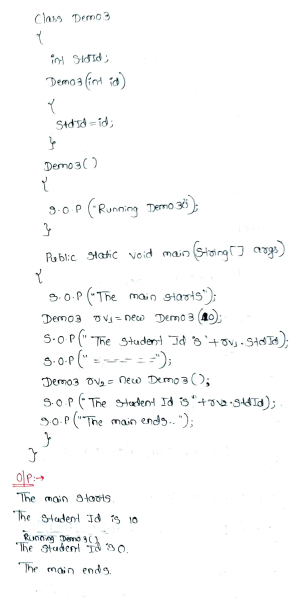 Class Demo3
{
int StdId;
Demo3(int id)
{
StdId=id;
}
Demo3()
{
S.O.P("Running Demo3()");
}
Public static void main(String[] args)
{
S.O.P("The main starts");
Demo3 rv1=new Demo3(10);
S.O.P("The Student Id is"+rv1.StdId);
S.O.P("======");
Demo3 rv2=new Demo3();
S.O.P("The student Id is"+rv2.stdId);
S.O.P("The main ends..");
}
}
O/P:→
The main starts.
The Student Id is 10
Running Demo3()
The Student Id is 0.
The main ends.